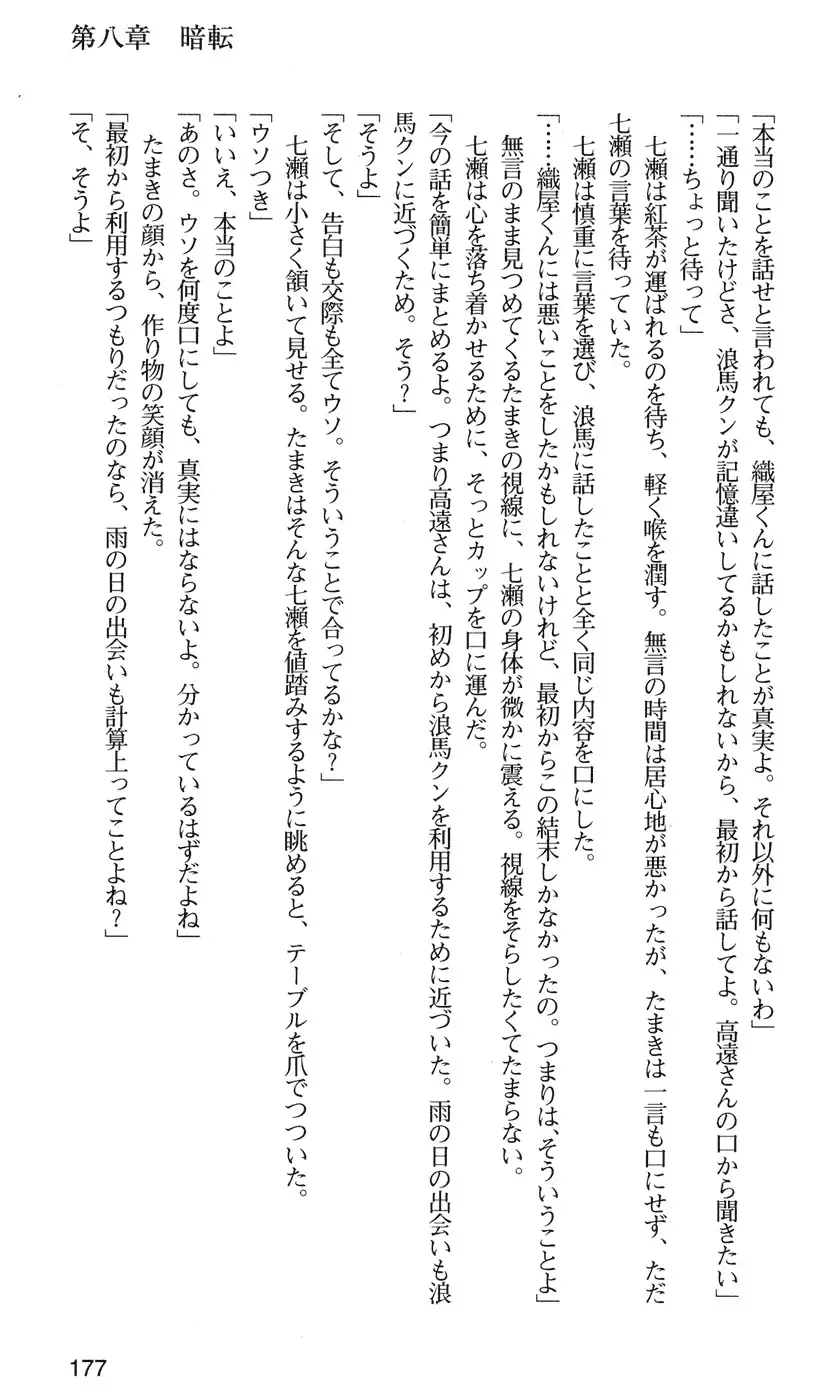 第八章　暗転
「本当のことを話せと言われても、織屋くんに話したことが真実よ。それ以外に何もないわ」
「一通り聞いたけどさ、浪馬クンが記憶違いしてるかもしれないから、最初から話してよ。高遠さんの口から聞きたい」
「……ちょっと待って」
　七瀬は紅茶が運ばれるのを待ち、軽く喉を潤す。無言の時間は居心地が悪かったが、たまきは一言も口にせず、ただ
七瀬の言葉を待っていた。
　七瀬は慎重に言葉を選び、浪馬に話したことと全く同じ内容を口にした。
「……織屋くんには悪いことをしたかもしれないけれど、最初からこの結末しかなかったの。つまりは、そういうことよ」
　無言のまま見つめてくるたまきの視線に、七瀬の身体が微かに震える。視線をそらしたくてたまらない。
　七瀬は心を落ち着かせるために、そっとカップを口に運んだ。
「今の話を簡単にまとめるよ。つまり高遠さんは、初めから浪馬クンを利用するために近づいた。雨の日の出会いも浪
馬クンに近づくため。そう？」
「そうよ」
「そして、告白も交際も全てウソ。そういうことで合ってるかな？」
　七瀬は小さく頷いて見せる。たまきはそんな七瀬を値踏みするように眺めると、テーブルを爪でつついた。
「ウソつき」
「いいえ、本当のことよ」
「あのさ。ウソを何度口にしても、真実にはならないよ。分かっているはずだよね」
　たまきの顔から、作り物の笑顔が消えた。
「最初から利用するつもりだったのなら、雨の日の出会いも計算上ってことよね？」
「そ、そうよ」
177